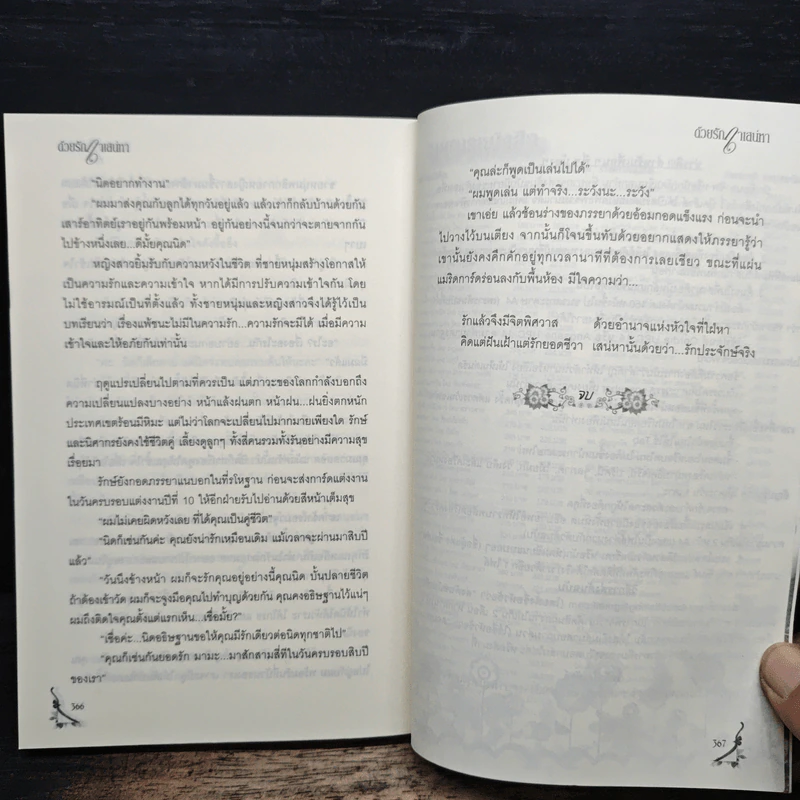 ด้วยรักเสน่หา
"นิดอยากทำงาน"
"ผมมาส่งคุณกับลูกได้ทุกวันอยู่แล้ว แล้วเราก็กลับบ้านด้วยกัน
เสาร์อาทิตย์เราอยู่กันพร้อมหน้า อยู่กันอย่างนี้จนกว่าจะตายจากกัน
ไปข้างหนึ่งเลย...ดีมั้ยคุณนิด"
หญิงสาวยิ้มรับกับความหวังในชีวิต ที่ชายหนุ่มสร้างโอกาสให้
เป็นความรักและความเข้าใจ หากได้มีการปรับความเข้าใจกัน โดย
ไม่ใช้อารมณ์เป็นที่ตั้งแล้ว ทั้งชายหนุ่มและหญิงสาวจึงได้รู้ไว้เป็น
บทเรียนว่า เรื่องแพ้ชนะไม่มีในความรัก...ความรักจะมีได้ เมื่อมีความ
เข้าใจและให้อภัยกันเท่านั้น
ฤดูแปรเปลี่ยนไปตามที่ควรเป็น แต่ภาวะของโลกกำลังบอกถึง
ความเปลี่ยนแปลงบางอย่าง หน้าแล้งฝนตก หน้าฝน...ฝนยิ่งตกหนัก
ประเทศเขตร้อนมีหิมะ แต่ไม่ว่าโลกจะเปลี่ยนไปมากมายเพียงใด รักษ์
และนิศากรยังคงใช้ชีวิตคู่ เลี้ยงดูลูกๆ ทั้งสี่คนรวมทั้งรันอย่างมีความสุข
เรื่อยมา
รักษ์ยังกอดภรรยาแนบอกในที่รโหฐาน ก่อนจะส่งการ์ดแต่งงาน
ในวันครบรอบแต่งงานปีที่ 10 ให้อีกฝ่ายรับไปอ่านด้วยสีหน้าเต็มสุข
"ผมไม่เคยผิดหวังเลย ที่ได้คุณเป็นคู่ชีวิต"
"นิดก็เช่นกันค่ะ คุณยังน่ารักเหมือนเดิม แม้เวลาจะผ่านมาสิบปี
แล้ว"
"วันนึงข้างหน้า ผมก็จะรักคุณอยู่อย่างนี้คุณนิด บั้นปลายชีวิต
ถ้าต้องเข้าวัด ผมก็จะจูงมือคุณไปทำบุญด้วยกัน คุณคงอธิษฐานไว้แน่ๆ
ผมถึงติดใจคุณตั้งแต่แรกเห็น...เชื่อมั้ย?"
"เชื่อค่ะ...นิดอธิษฐานขอให้คุณมีรักเดียวต่อนิดทุกชาติไป"
"คุณก็เช่นกันยอดรัก มามะ...มาสักสามสี่ทีในวันครบรอบสิบปี
ของเรา"
366
ด้วยรักเสน่หา
"คุณล่ะก็พูดเป็นเล่นไปได้"
"ผมพูดเล่น แต่ทำจริง...ระวังนะ...ระวัง"
เขาเอ่ย แล้วช้อนร่างของภรรยาด้วยอ้อมกอดแข็งแรง ก่อนจะนำ
ไปวางไว้บนเตียง จากนั้นก็โจนขึ้นทับด้วยอยากแสดงให้ภรรยารู้ว่า
เขานั้นยังคงคึกคักอยู่ทุกเวลานาทีที่ต้องการเลยเชียว ขณะที่แผ่น
เมริดการ์ดร่อนลงกับพื้นห้อง มีใจความว่า...
รักแล้วจึงมีจิตพิศวาส ด้วยอำนาจแห่งหัวใจที่ใฝ่หา
คิดแต่ฝันเฝ้าแต่รักยอดชีวา เสน่หานั้นด้วยว่า...รักประจักษ์จริง
จบ
367